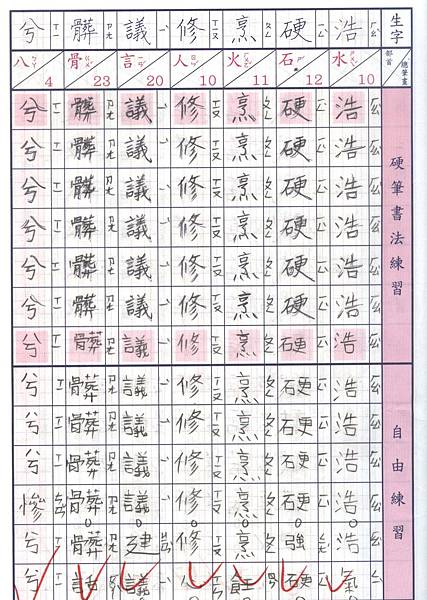 生字
部首 總筆畫
硬筆書法練習
自由練習
浩 水 10 浩浩浩浩浩浩浩浩浩浩浩浩氣
硬 石 12 硬硬硬硬硬硬硬硬硬硬硬強硬
烹 火 11 烹烹烹烹烹烹烹烹烹烹烹烹飪
修 人 10 修修修修修修修修修修修修
議 言 20 議議議議議議議議議議議建議
髒 骨 23 髒髒髒髒髒髒髒髒髒髒髒髒話
兮 八 4 兮兮兮兮兮兮兮兮兮兮慘兮兮